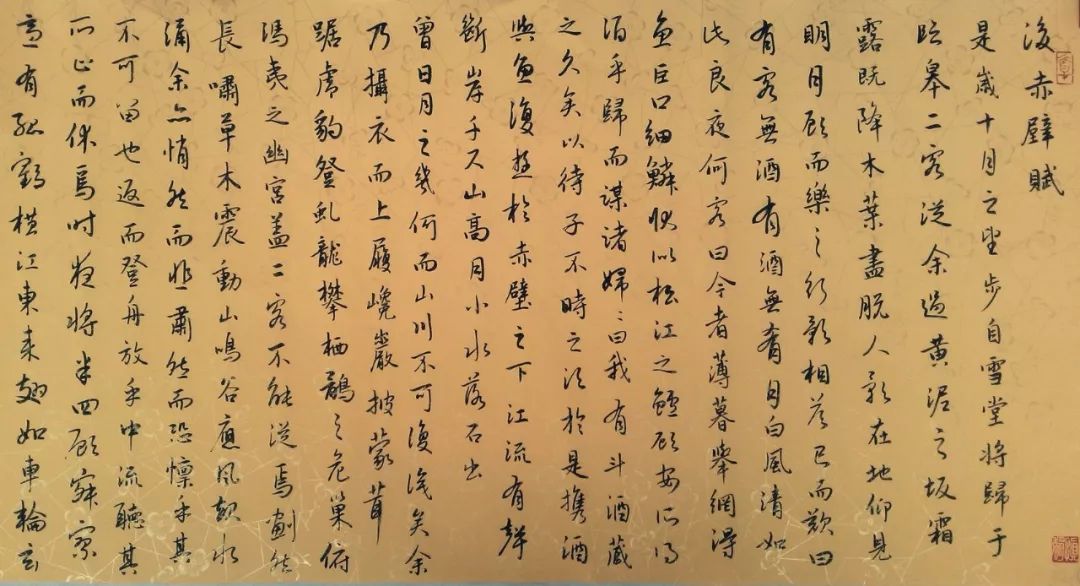 後赤壁賦
是歲十月之望步自雪堂將歸于
臨皋二客從余過黃泥之坂霜
露既降木葉盡脫人影在地仰見
明月顧而樂之行歌相答已而歎曰
有客無酒有酒無肴月白風清如
此良夜何客曰今者薄暮舉網得
魚巨口細鱗狀似松江之鱸顧安所得
酒乎歸而謀諸婦〻曰我有斗酒藏
之久矣以待子不時之須於是携酒
與魚復遊於赤壁之下江流有聲
斷岸千尺山高月小水落石出
曾日月之幾何而山川不可復識矣余
乃攝衣而上履巉巖披蒙茸
踞虎豹登虬龍攀栖鶻之危巢俯
馮夷之幽宮蓋二客不能從焉劃然
長嘯草木震動山鳴谷應風起水
涌余亦悄然而悲肅然而恐懍乎其
不可留也返而登舟放乎中流聽其
所止而休焉時夜將半四顧寂寥
適有孤鶴橫江東來翅如車輪玄